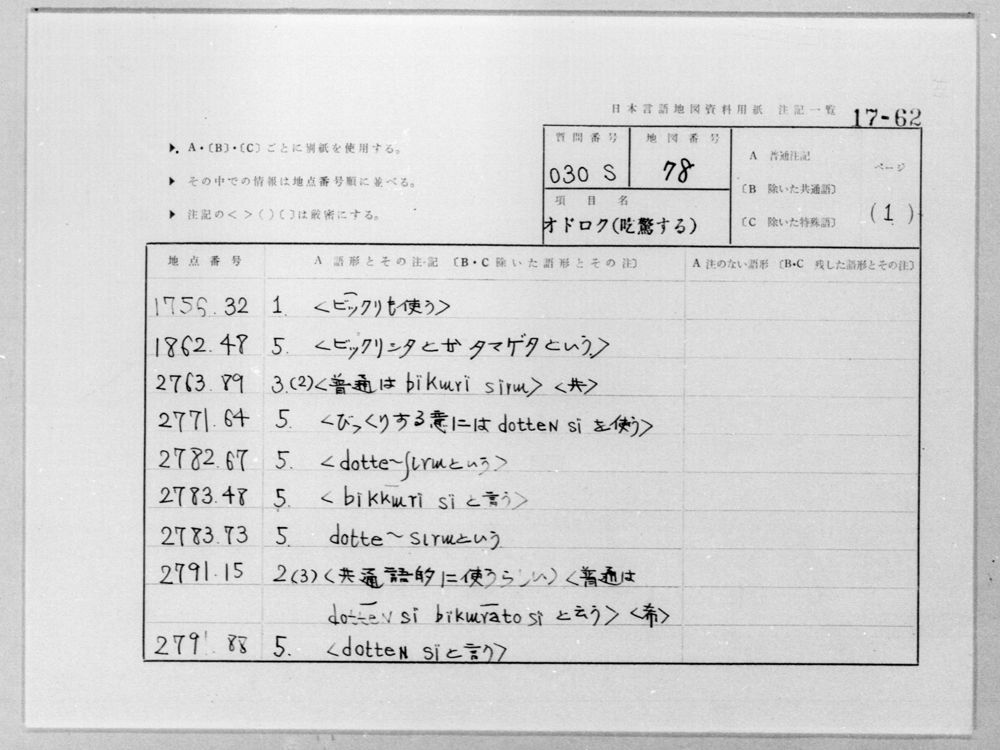 日本言語地図資料用紙 注記一覧 17-62
▶ A・〔B〕・〔C〕ごとに別紙を使用する。
▶ その中での情報は地点番号順に並べる。
▶ 注記の< >( )〔 〕は厳密にする。
質問番号 地図番号
030 S 78
項目名
オドロク(吃驚する)
A 普通注記
〔B 除いた共通語〕
〔C 除いた特殊語〕
ページ
(1)
地点番号 A 語形とその注記〔B・C 除いた語形とその注〕 A 注のない語形〔B・C 残した語形とその注〕
1756.32 1. <ビックリも使う>
1862.48 5. <ビックリシタとか タマゲタという>
2763.89 3.(2)<普通は bïkɯri sïrɯ> <共>
2771.64 5. <びっくりする意には dotteɴ sï を使う>
2782.67 5. <dotte~ʃïrɯという>
2783.48 5. <bïkkɯri sï と言う>
2783.73 5. dotte~ sïrɯという
2791.15 2(3)<共通語的に使うらしい><普通は
dotteɴ sï bïkɯrato sï と云う> <希>
279 .88 5. <dotteɴ sï と言う>